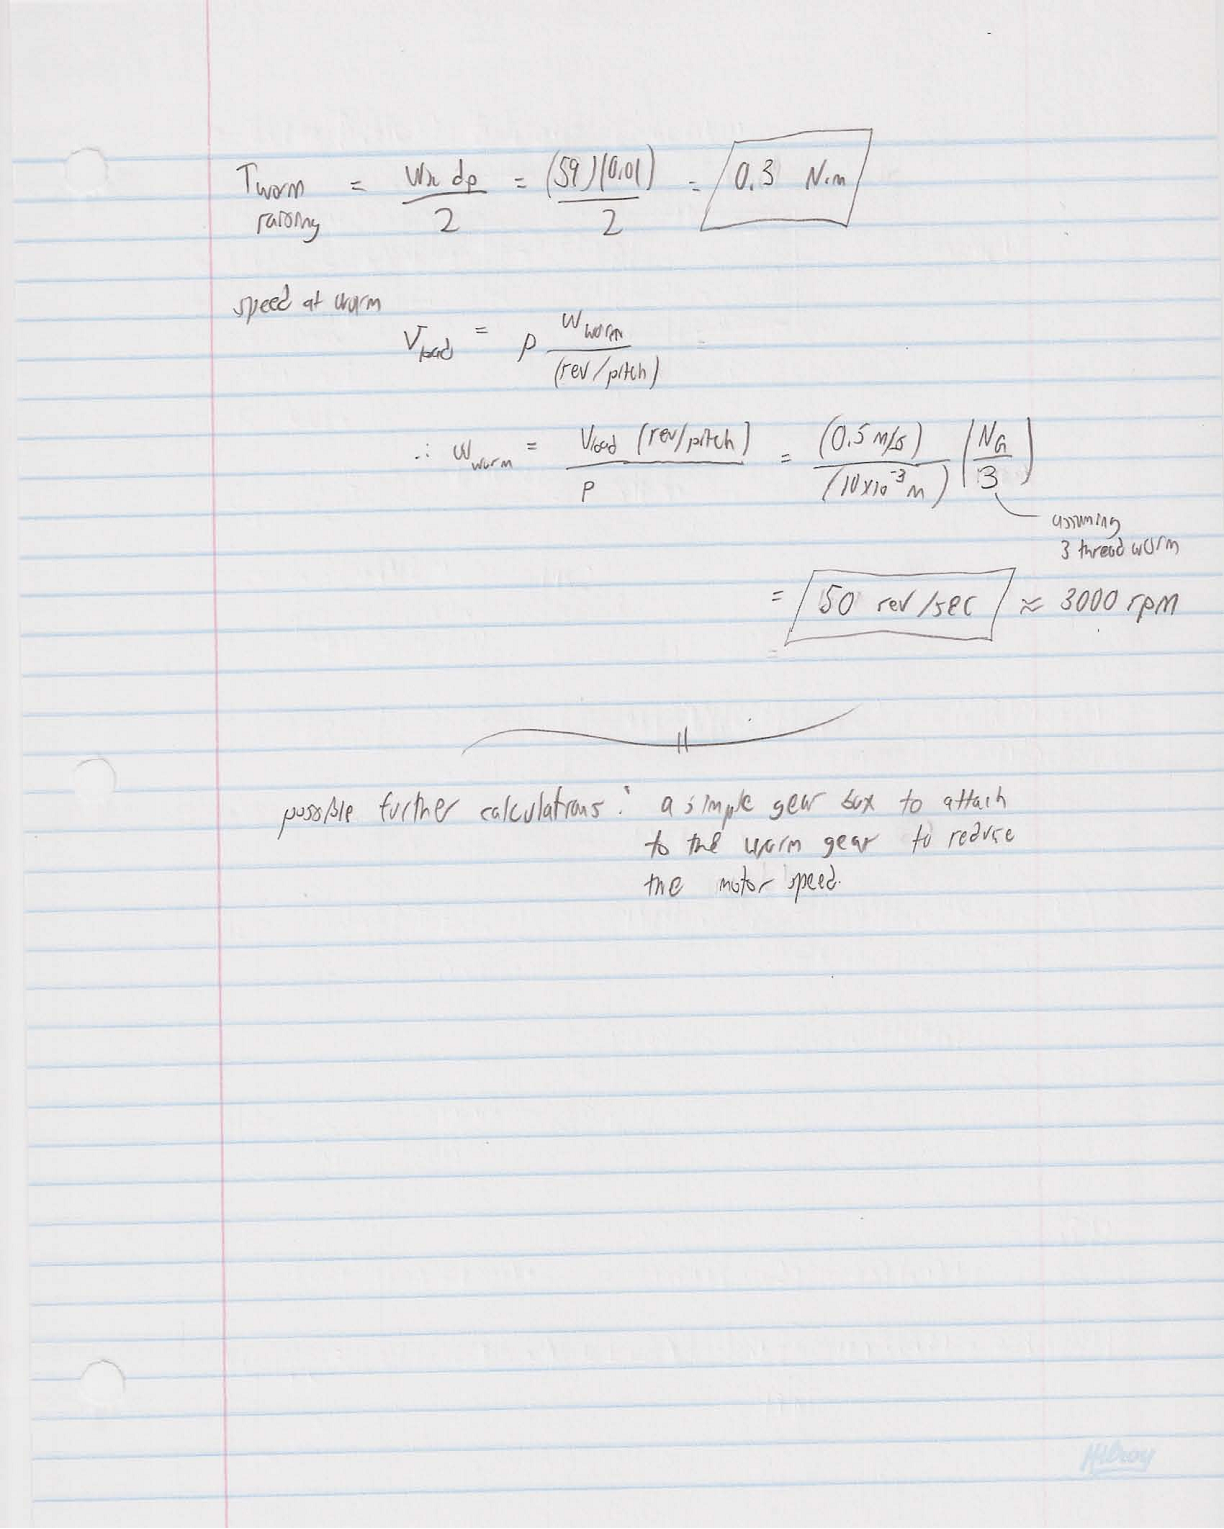 T worm raising = Wx dp / 2 = (59)(0.01) / 2 = 0.3 N·m
speed at worm
V load = p ω worm / (rev/pitch) =
∴ ω worm = V load (rev/pitch) / p = (0.5 m/s) / (10x10⁻³ m) (N_G / 3)
assuming
3 thread worm
= 50 rev/sec ≈ 3000 rpm
possible further calculations: a simple gear box to attach
to the worm gear to reduce
the motor speed.
Hilroy